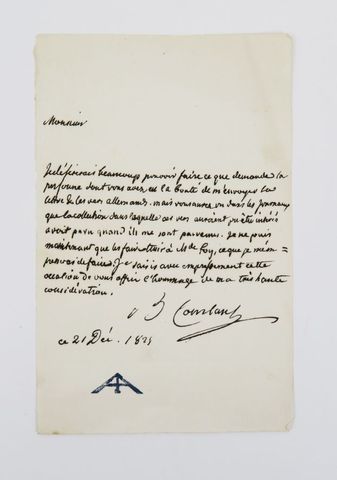 Monsieur
Je désirerais beaucoup pouvoir faire ce que demande la
personne dont vous avez eu la bonté de m'envoyer la
lettre & les vers allemands. mais vous aurez vu dans les journaux
que la collection dans laquelle ces vers auraient pu être insérés
avoit paru quand ils me sont parvenus. Je ne puis
maintenant que les faire tenir à Mde Foy, ce que je m'em=
presserai de faire. Je saisis avec empressement cette
occasion de vous offrir l'hommage de ma très haute
considération.
B Constant
ce 21 Déc. 1825